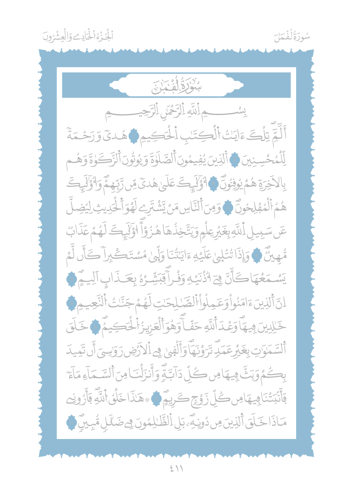 سُورَةُ لُقْمَٰنَ
الجُزْءُ الحَادِي وَالعِشْرُونَ
سُورَةُ لُقْمَٰنَ
بِسْمِ ٱللَّهِ ٱلرَّحْمَٰنِ ٱلرَّحِيمِ
الٓمٓ تِلْكَ ءَايَٰتُ ٱلْكِتَٰبِ ٱلْحَكِيمِ هُدًى وَرَحْمَةً
لِّلْمُحْسِنِينَ ٱلَّذِينَ يُقِيمُونَ ٱلصَّلَوٰةَ وَيُؤْتُونَ ٱلزَّكَوٰةَ وَهُم
بِٱلْأَخِرَةِ هُمْ يُوقِنُونَ أُوْلَٰٓئِكَ عَلَىٰ هُدًى مِّن رَّبِّهِمْ وَأُوْلَٰٓئِكَ
هُمُ ٱلْمُفْلِحُونَ وَمِنَ ٱلنَّاسِ مَن يَشْتَرِى لَهْوَ ٱلْحَدِيثِ لِيُضِلَّ
عَن سَبِيلِ ٱللَّهِ بِغَيْرِ عِلْمٍ وَيَتَّخِذُهَا هُزُؤًا أُوْلَٰٓئِكَ لَهُمْ عَذَابٌ
مُّهِينٌ وَإِذَا تُتْلَىٰ عَلَيْهِ ءَايَٰتُنَا وَلَّىٰ مُسْتَكْبِرًا كَأَن لَّمْ
يَسْمَعْهَا كَأَنَّ فِىٓ أُذْنَيْهِ وَقْرًا فَبَشِّرْهُ بِعَذَابٍ أَلِيمٍ
إِنَّ ٱلَّذِينَ ءَامَنُوا۟ وَعَمِلُوا۟ ٱلصَّٰلِحَٰتِ لَهُمْ جَنَّٰتُ ٱلنَّعِيمِ
خَٰلِدِينَ فِيهَا وَعْدَ ٱللَّهِ حَقًّا وَهُوَ ٱلْعَزِيزُ ٱلْحَكِيمُ خَلَقَ
ٱلسَّمَٰوَٰتِ بِغَيْرِ عَمَدٍ تَرَوْنَهَا وَأَلْقَىٰ فِى ٱلْأَرْضِ رَوَٰسِىَ أَن تَمِيدَ
بِكُمْ وَبَثَّ فِيهَا مِن كُلِّ دَآبَّةٍ وَأَنزَلْنَا مِنَ ٱلسَّمَآءِ مَآءً
فَأَنۢبَتْنَا فِيهَا مِن كُلِّ زَوْجٍ كَرِيمٍ هَٰذَا خَلْقُ ٱللَّهِ فَأَرُونِى
مَاذَا خَلَقَ ٱلَّذِينَ مِن دُونِهِۦ بَلِ ٱلظَّٰلِمُونَ فِى ضَلَٰلٍ مُّبِينٍ
٤١١